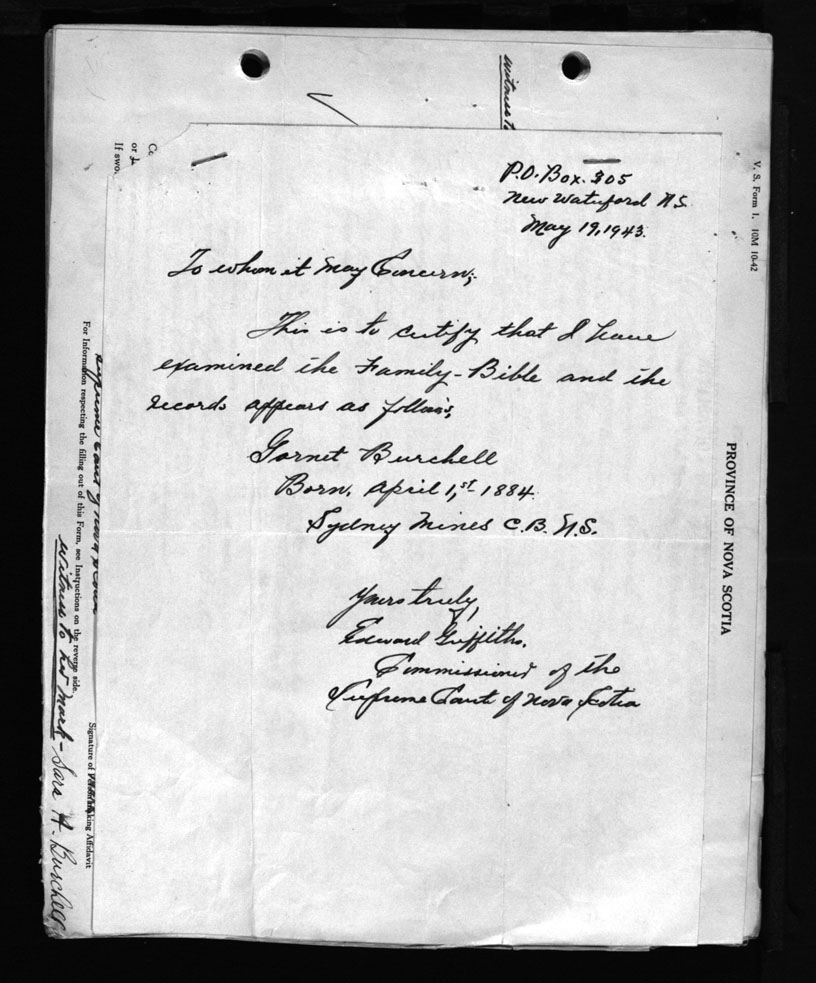 P.O. Box. 305
New Waterford N.S.
May 19, 1943.
To whom it may Concern;
This is to certify that I have
examined the Family-Bible and the
records appears as follows;
Gornet Burchell
Born, April 1,st 1884
Sydney Mines C.B. N.S.
Yours truly,
Edward Griffiths.
Commissioner of the
Supreme Court of Nova Scotia
V. S. Form 1. 10M 10-42
PROVINCE OF NOVA SCOTIA
witness to
or
If swo
supreme court of nova scotia
For Information respecting the filling out of this Form, see Instructions on the reverse side.
witness to her mark - Sara A. Burchell
Signature of Person Making Affidavit